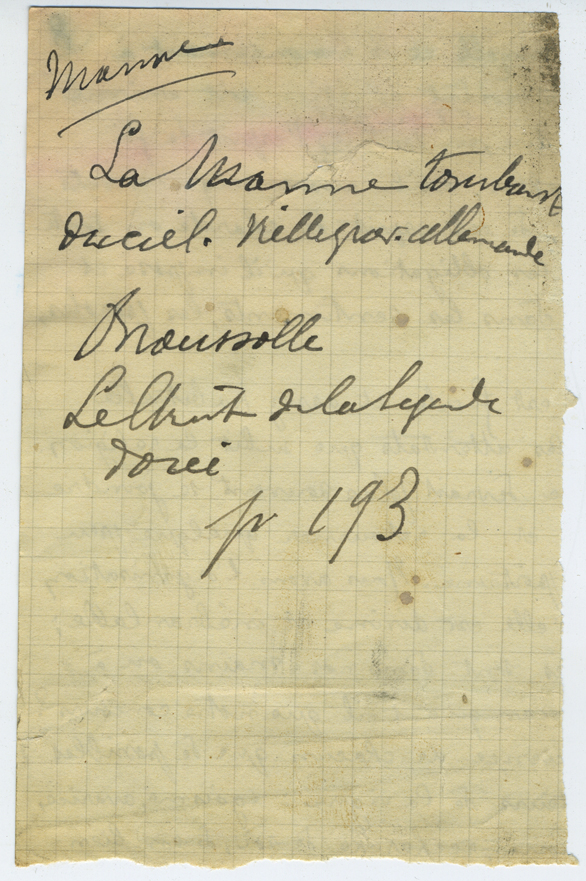 Manne
La Manne tombant
du ciel. Vielle grav. allemande
Broussolle
Le Christ de la Légende
dorée
p 193